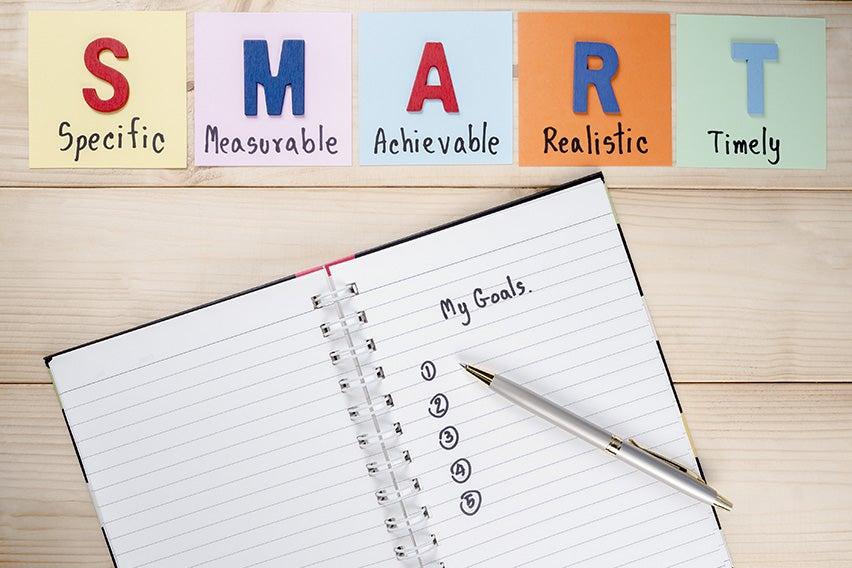 S M A R T
Specific Measurable Achievable Realistic Timely
My Goals.
1
2
3
4
5